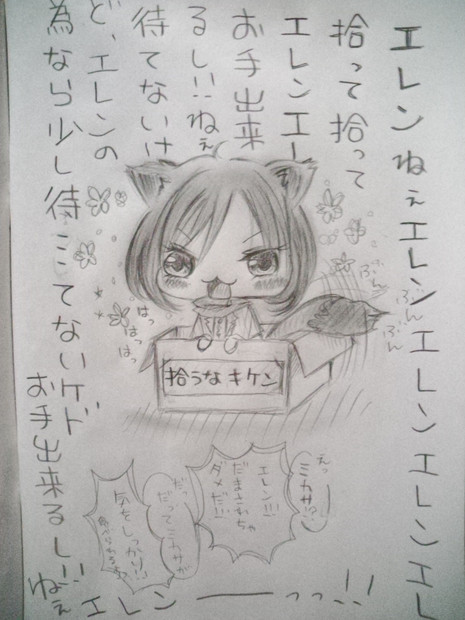 エレンねぇエレンエレンエレンエレ
拾って拾って
エレンエ
お手出来
るし!!ねぇ
待てないけ
ど、エレンの
為なら少し待…てないケド
お手出来るし!!ねぇ
エレン――っっ!!
ぶんっ
ぶん
ぶん
はっ
はっ
はっ
拾うなキケン
えっ
ミカサ!?
エレン!!!
だまされちゃ
ダメだ!!!
だっ
だってミカサが
気をしっかり!!